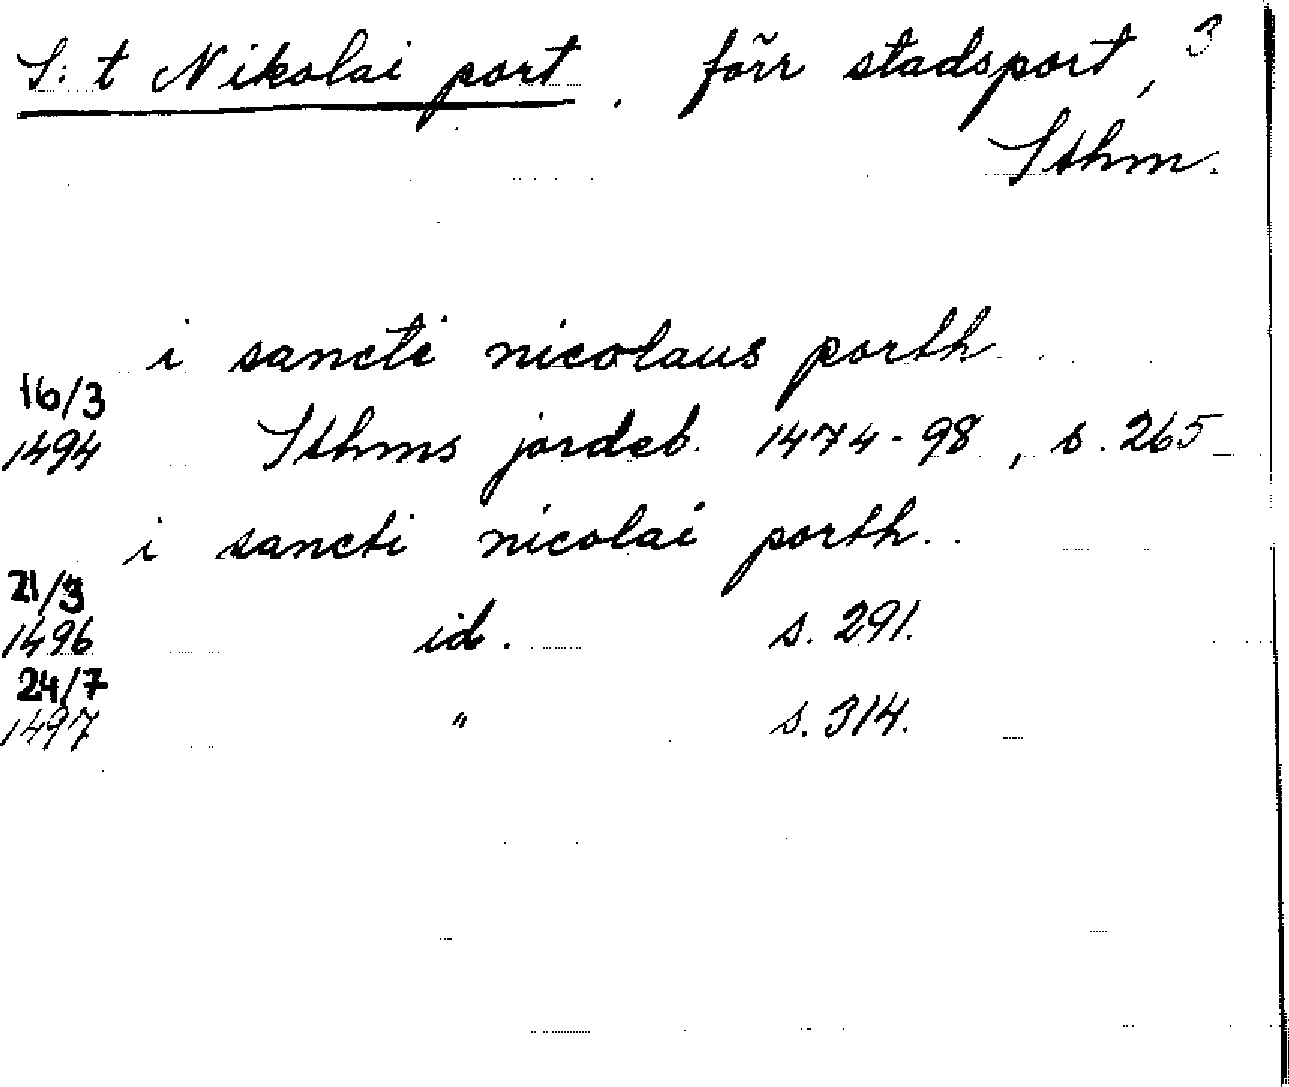 S:t Nikolai port. förr stadsport, 3
Sthm.
i sancti nicolaus porth
16/3
1494 Sthms jordeb. 1474-98, s. 265
i sancti nicolai porth..
21/3
1496 id. s. 291.
24/7
1497 " s. 314.